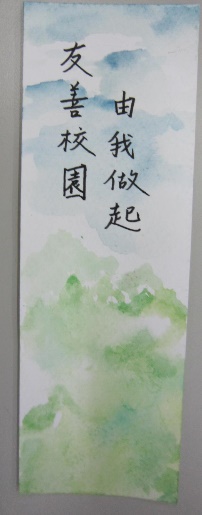 友善校園
由我做起